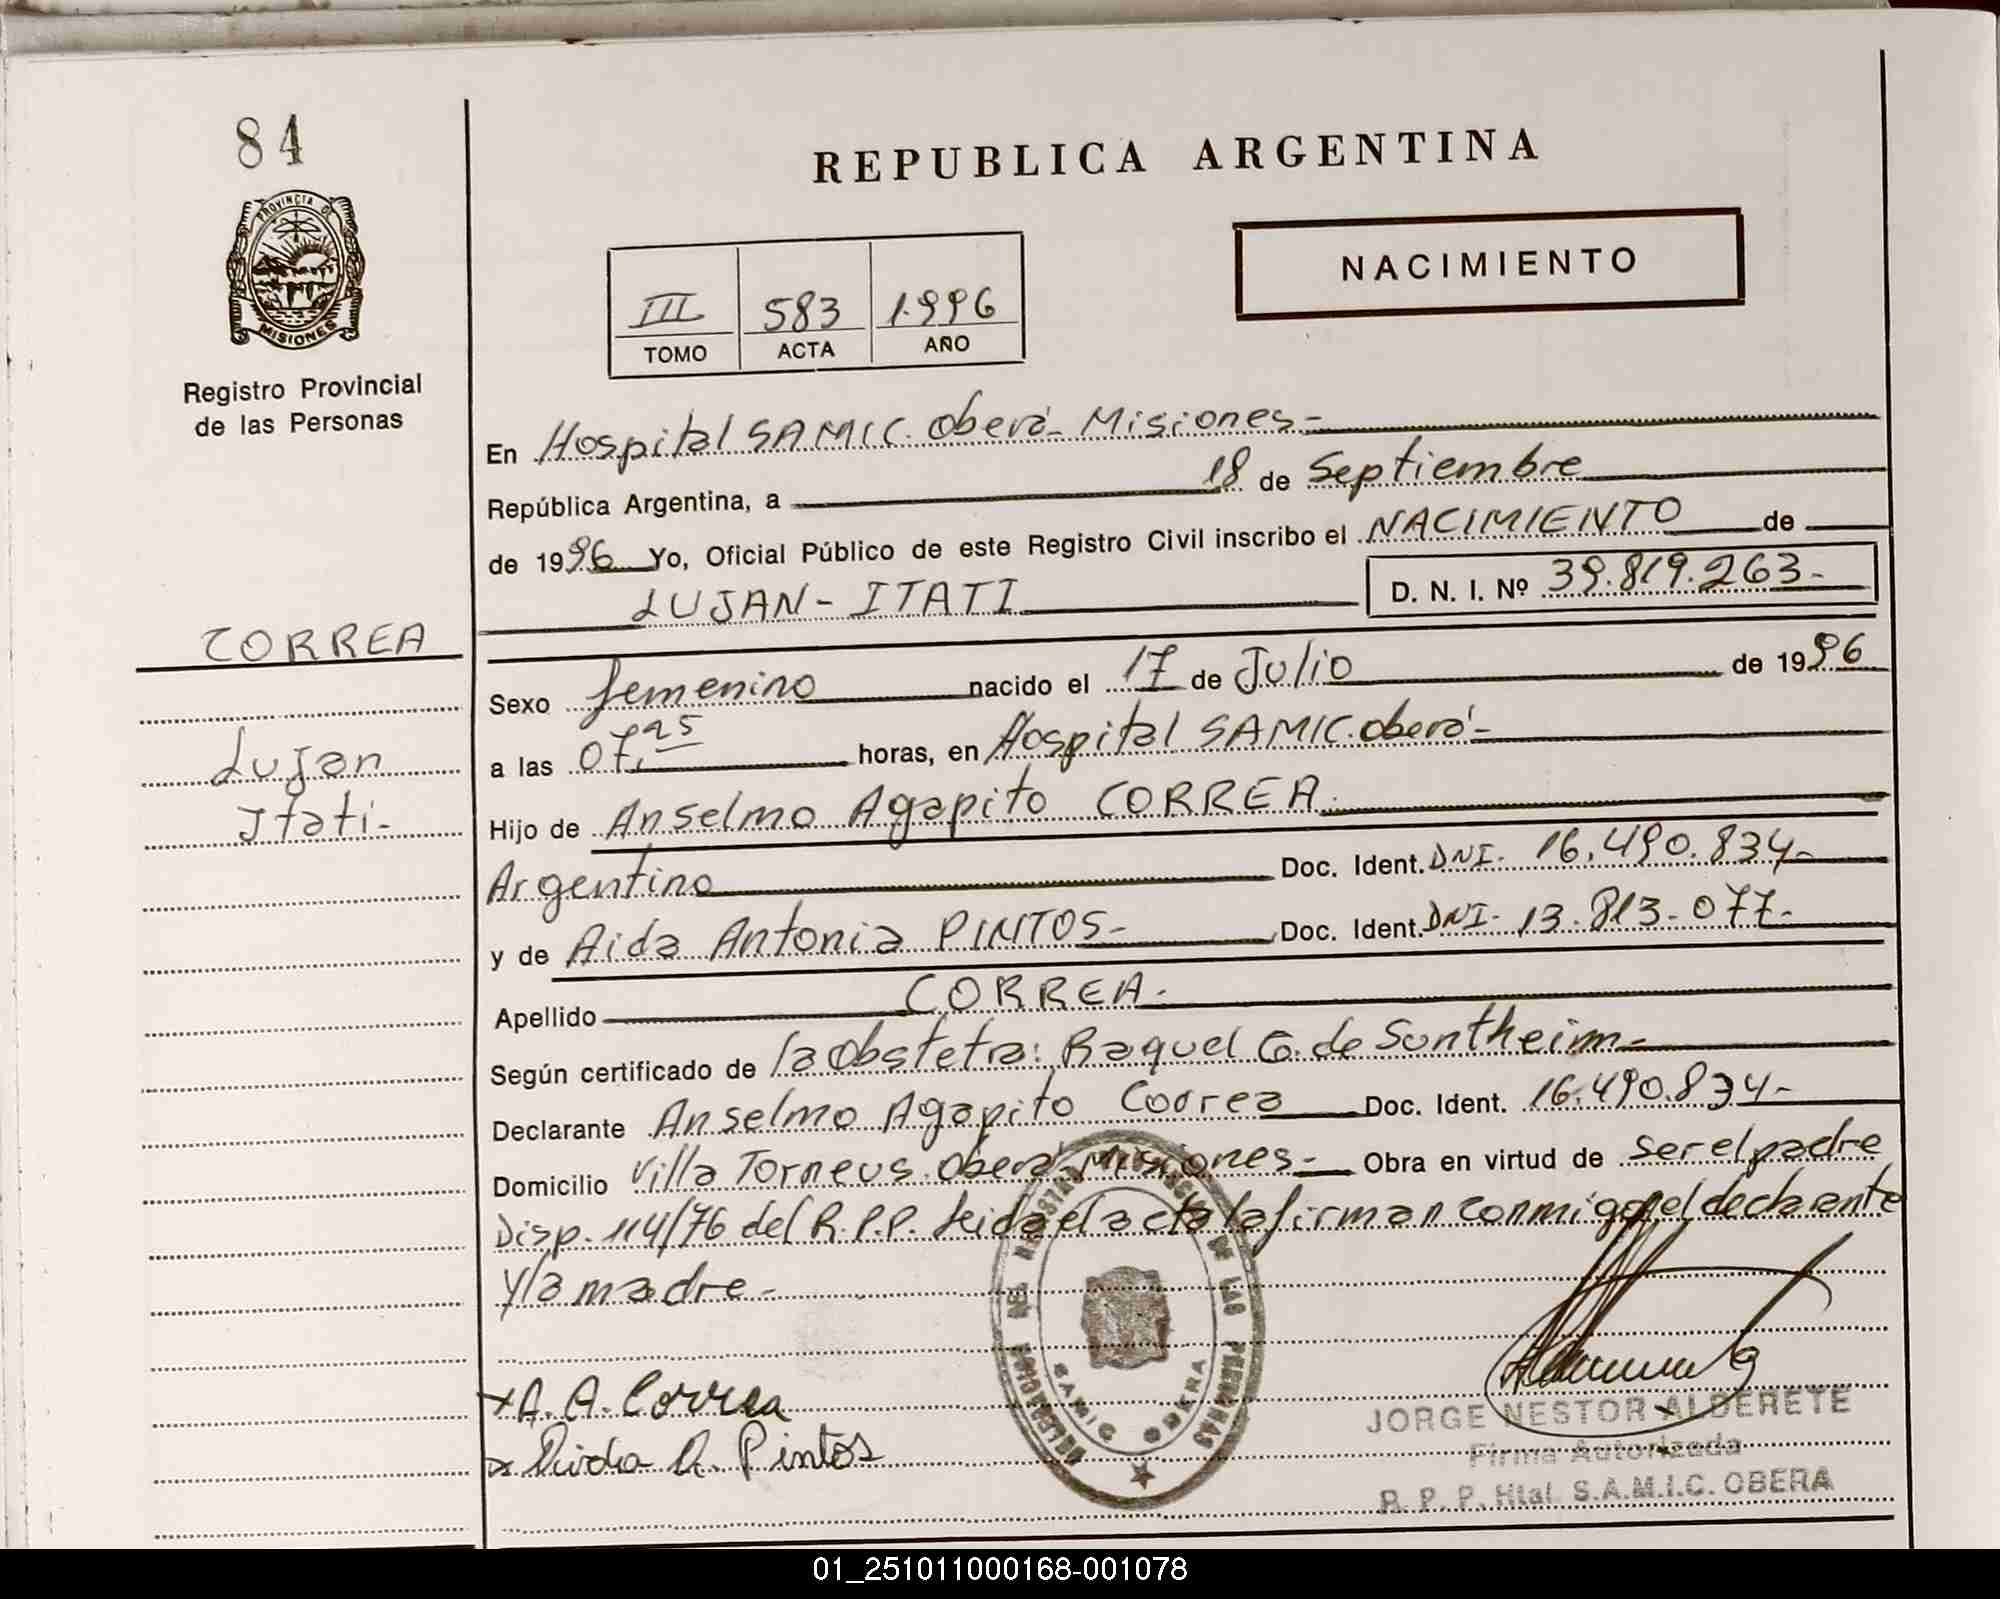 84
PROVINCIA DE
MISIONES
Registro Provincial
de las Personas
CORREA
Lujan
Itati-
REPUBLICA ARGENTINA
NACIMIENTO
III 583 1.996
TOMO ACTA AÑO
En Hospital SAMIC. Oberá- Misiones-
República Argentina, a 18 de Septiembre
de 1996 Yo, Oficial Público de este Registro Civil inscribo el NACIMIENTO de
LUJAN- ITATI D. N. I. Nº 39.819.263-
Sexo femenino nacido el 17 de Julio de 1996
a las 07,25 horas, en Hospital SAMIC. oberá-
Hijo de Anselmo Agapito CORREA.
Argentino Doc. Ident. DNI. 16.490.834-
y de Aida Antonia PINTOS- Doc. Ident. DNI- 13.813.077-
Apellido CORREA.
Según certificado de la Obstetra: Raquel G. de Sontheim-
Declarante Anselmo Agapito Correa Doc. Ident. 16.490.834-
Domicilio Villa Torneus. Oberá. Misiones- Obra en virtud de ser el padre
Disp. 114/76 del R.P.P. leida el acta la firman conmigo el declarante
y la madre-
A. A. Correa
A. Pintos
DELEGACION DEL REGISTRO PROVINCIAL DE LAS PERSONAS
SAMIC OBERA
JORGE NESTOR ALDERETE
Firma Autorizada
R. P. P. Htal. S.A.M.I.C. OBERA
01_251011000168-001078